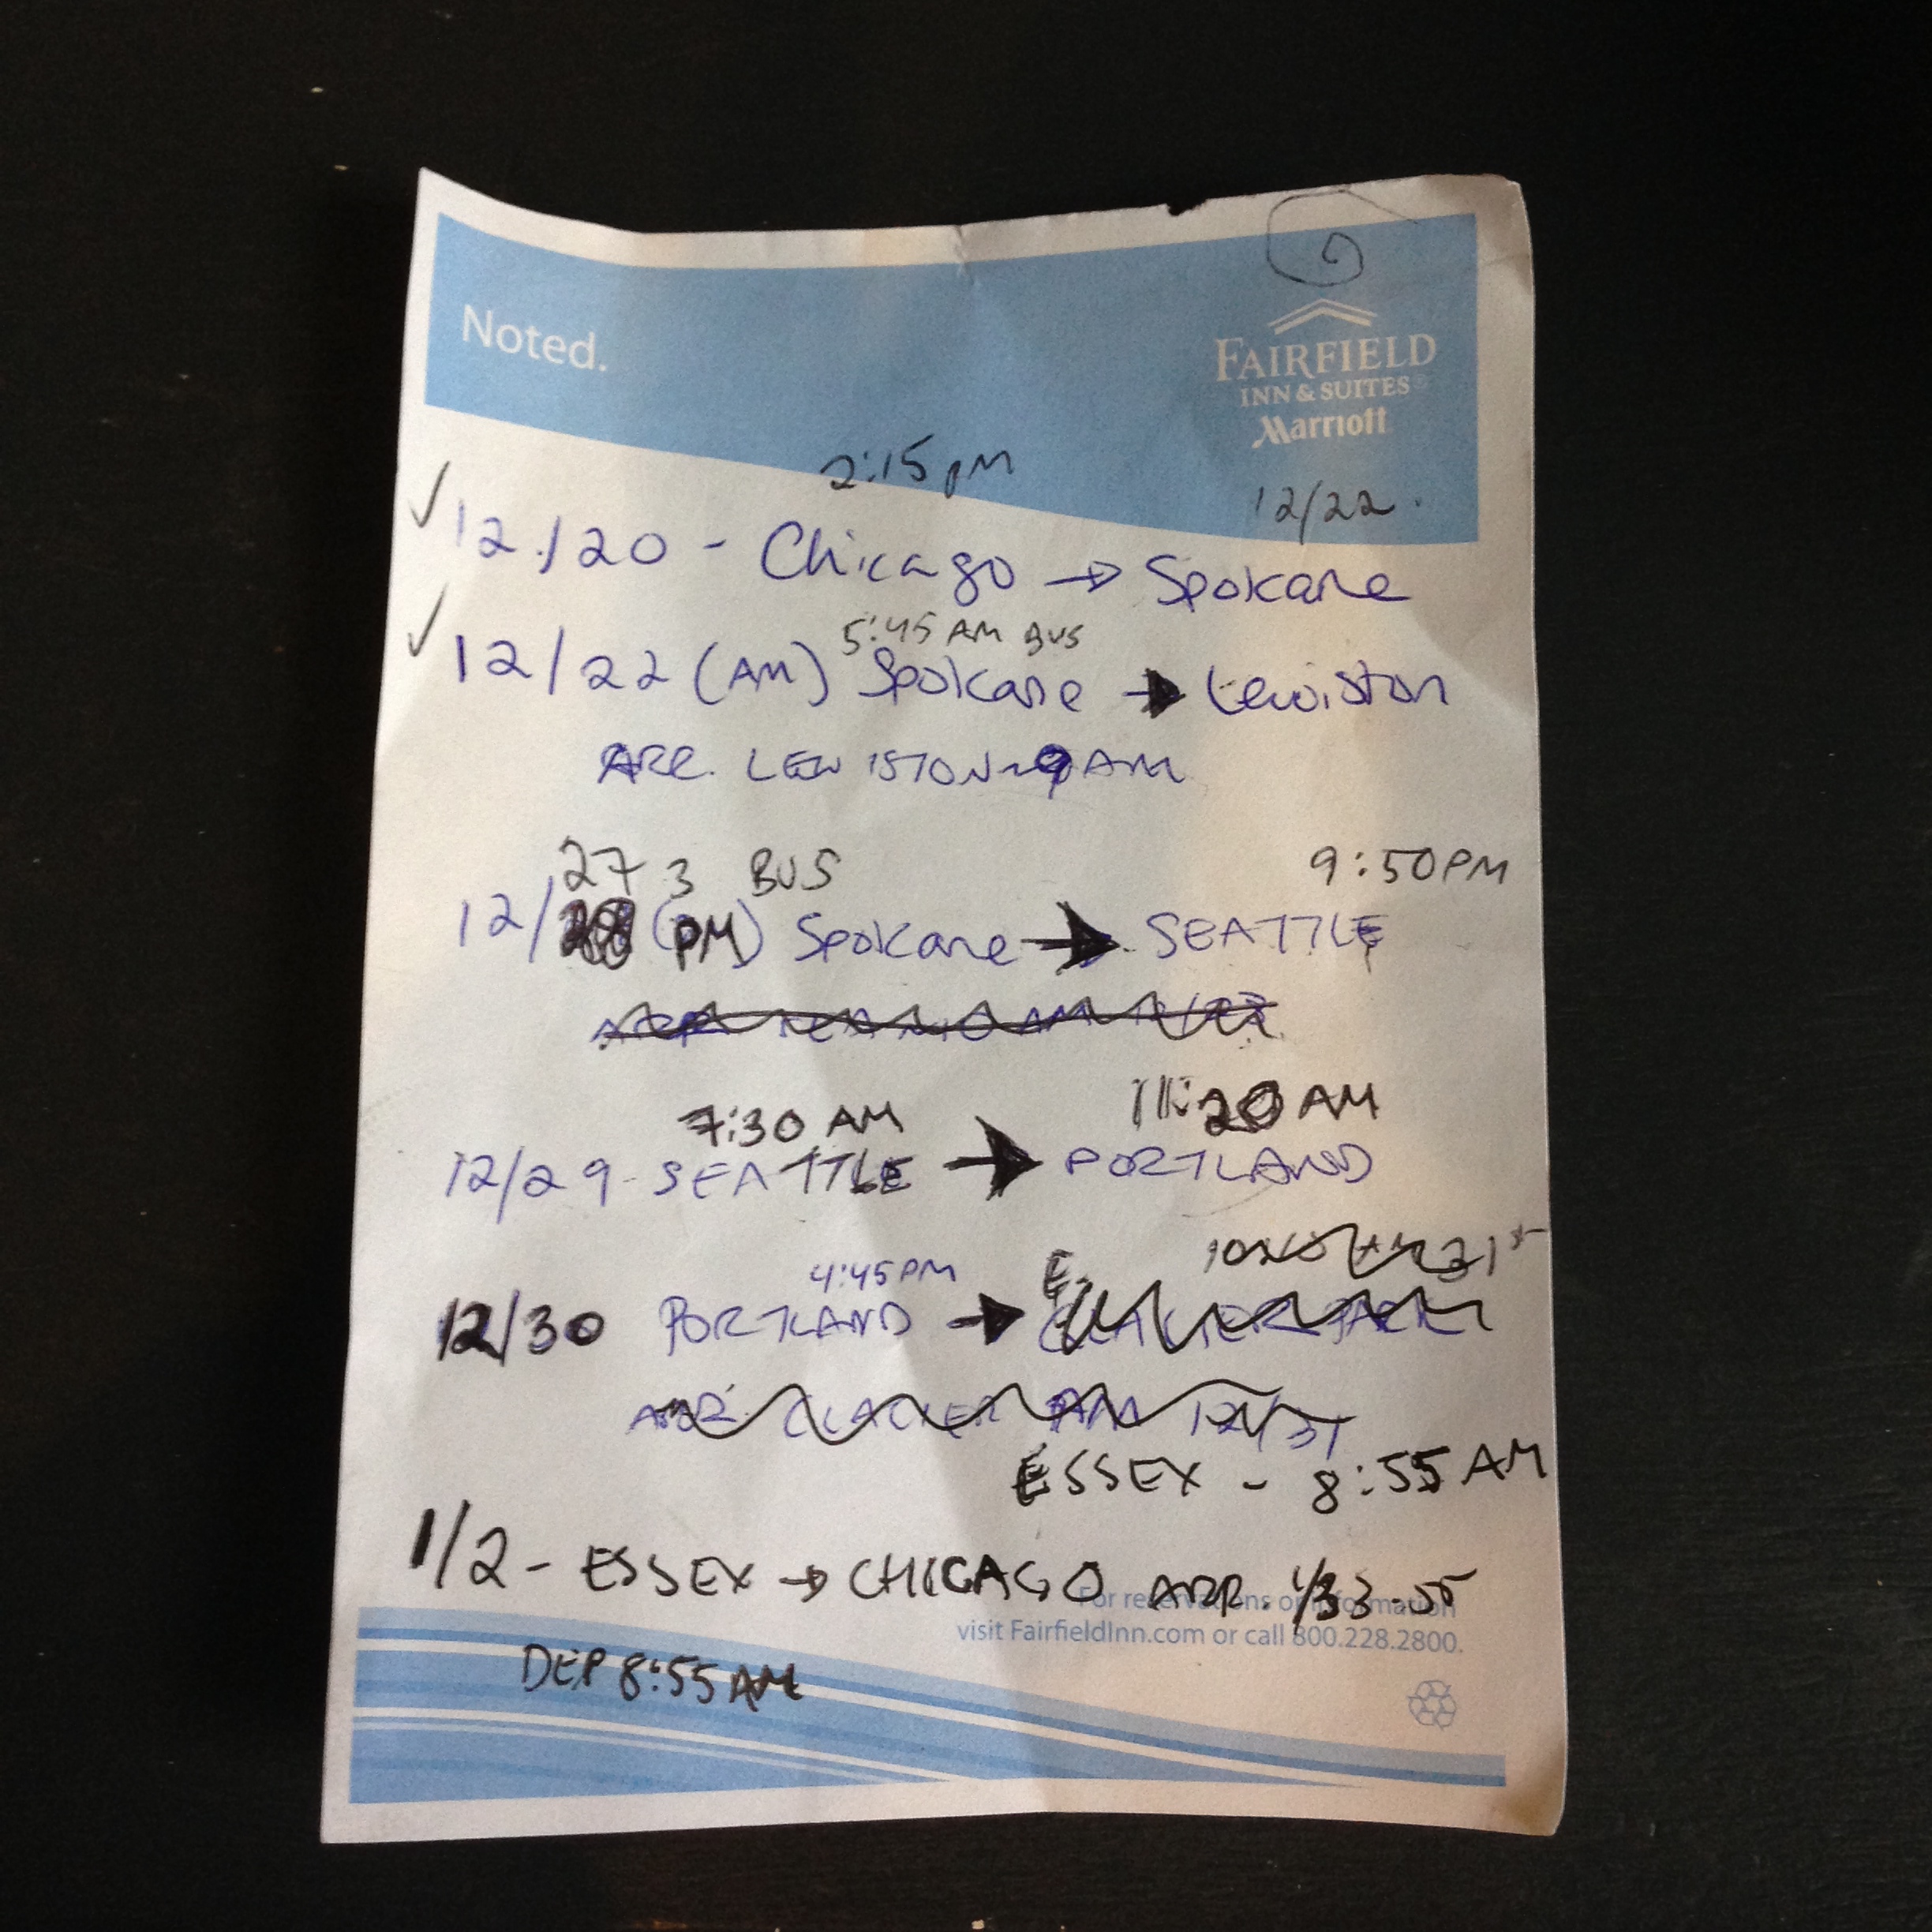 Noted.
FAIRFIELD
INN & SUITES®
Marriott
2:15 pM
12/22.
✓ 12/20 - Chicago → Spokane
5:45 AM BUS
✓ 12/22 (AM) Spokane → Lewiston
ARR. LEWISTON ~9AM
27 3 BUS 9:50PM
12/ (PM) Spokane → SEATTLE
7:30 AM 11:20 AM
12/29 - SEATTLE → PORTLAND
4:45PM
12/30 PORTLAND →
ARR. GLACIER AM 12/31
ESSEX - 8:55 AM
1/2 - ESSEX → CHICAGO ARR.
For reservations or information
visit FairfieldInn.com or call 800.228.2800.
DEP 8:55AM